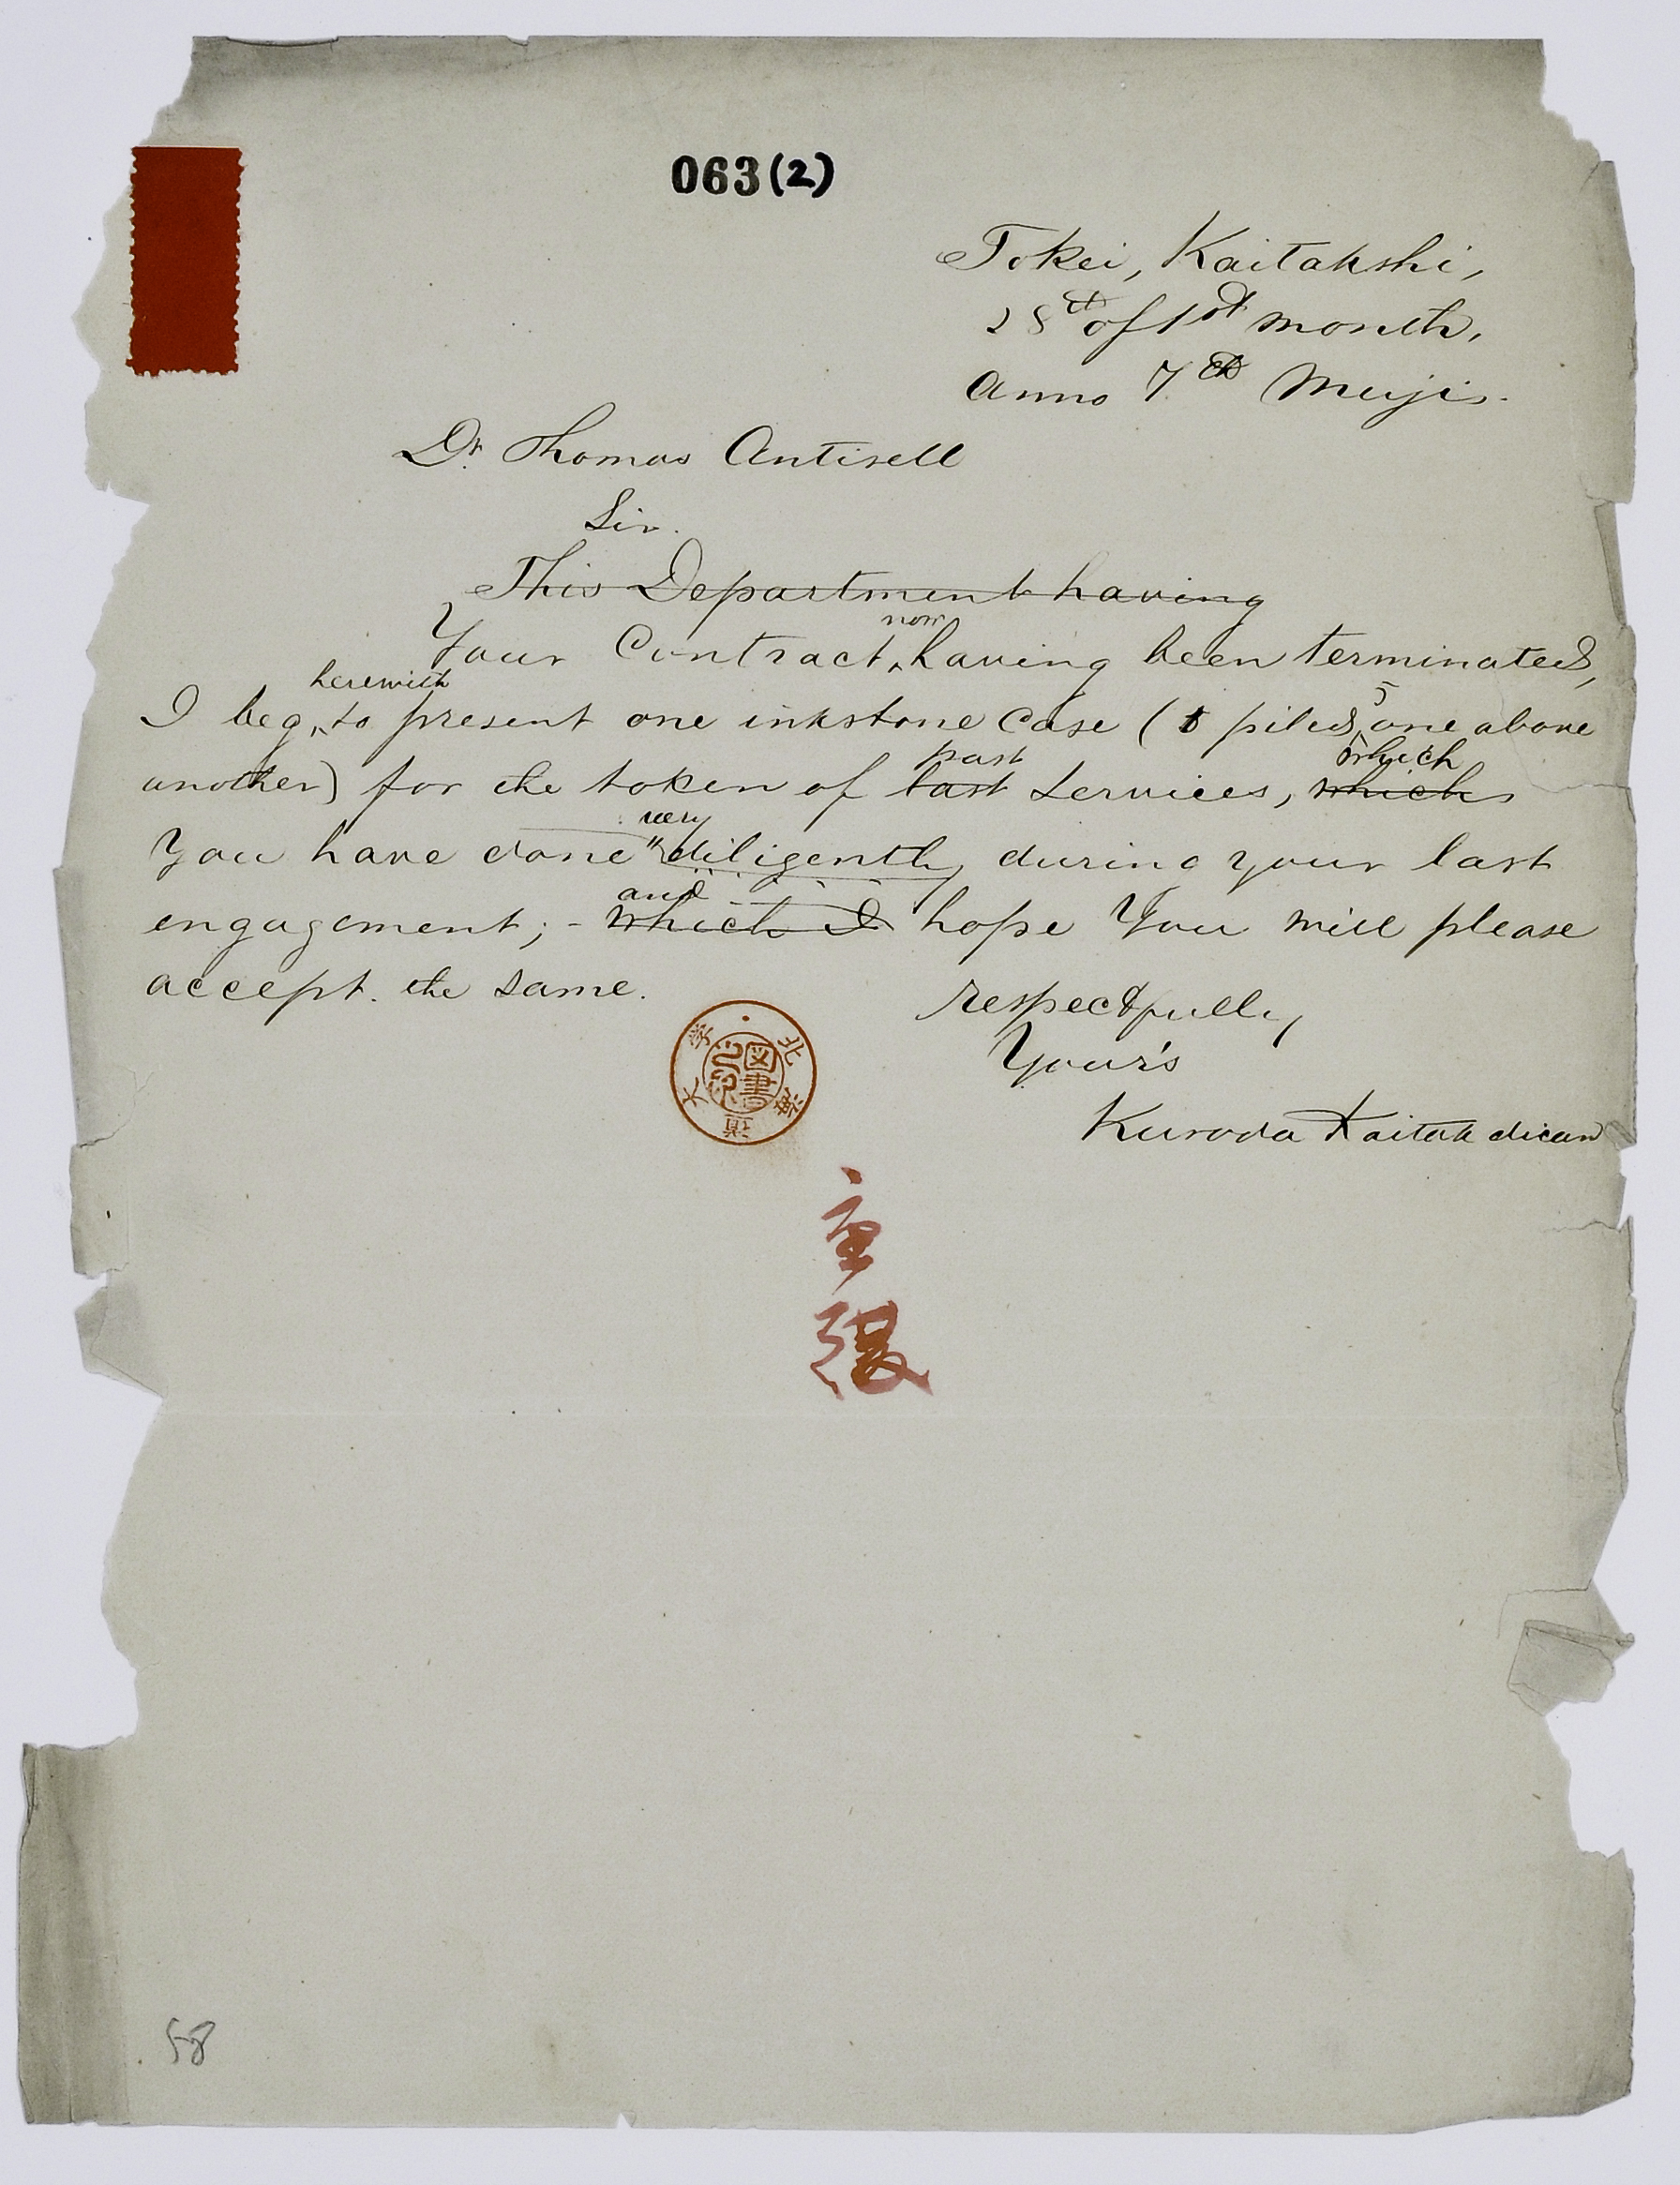 063(2)
Tokei, Kaitakshi,
28th of 1st month,
Anno 7th Meiji.
Dr. Thomas Antisell
Sir.
This Department having
now
Your Contract, having been terminated,
herewith
5
I beg, to present one inkstone case (5 piled, one above
past
which
another) for the token of last services, which
very
you have done diligently during your last
and
engagement; - which I hope You will please
accept. the same.
respectfully
Your's
Kuroda Kaitak dican
北海道大学
図書
58